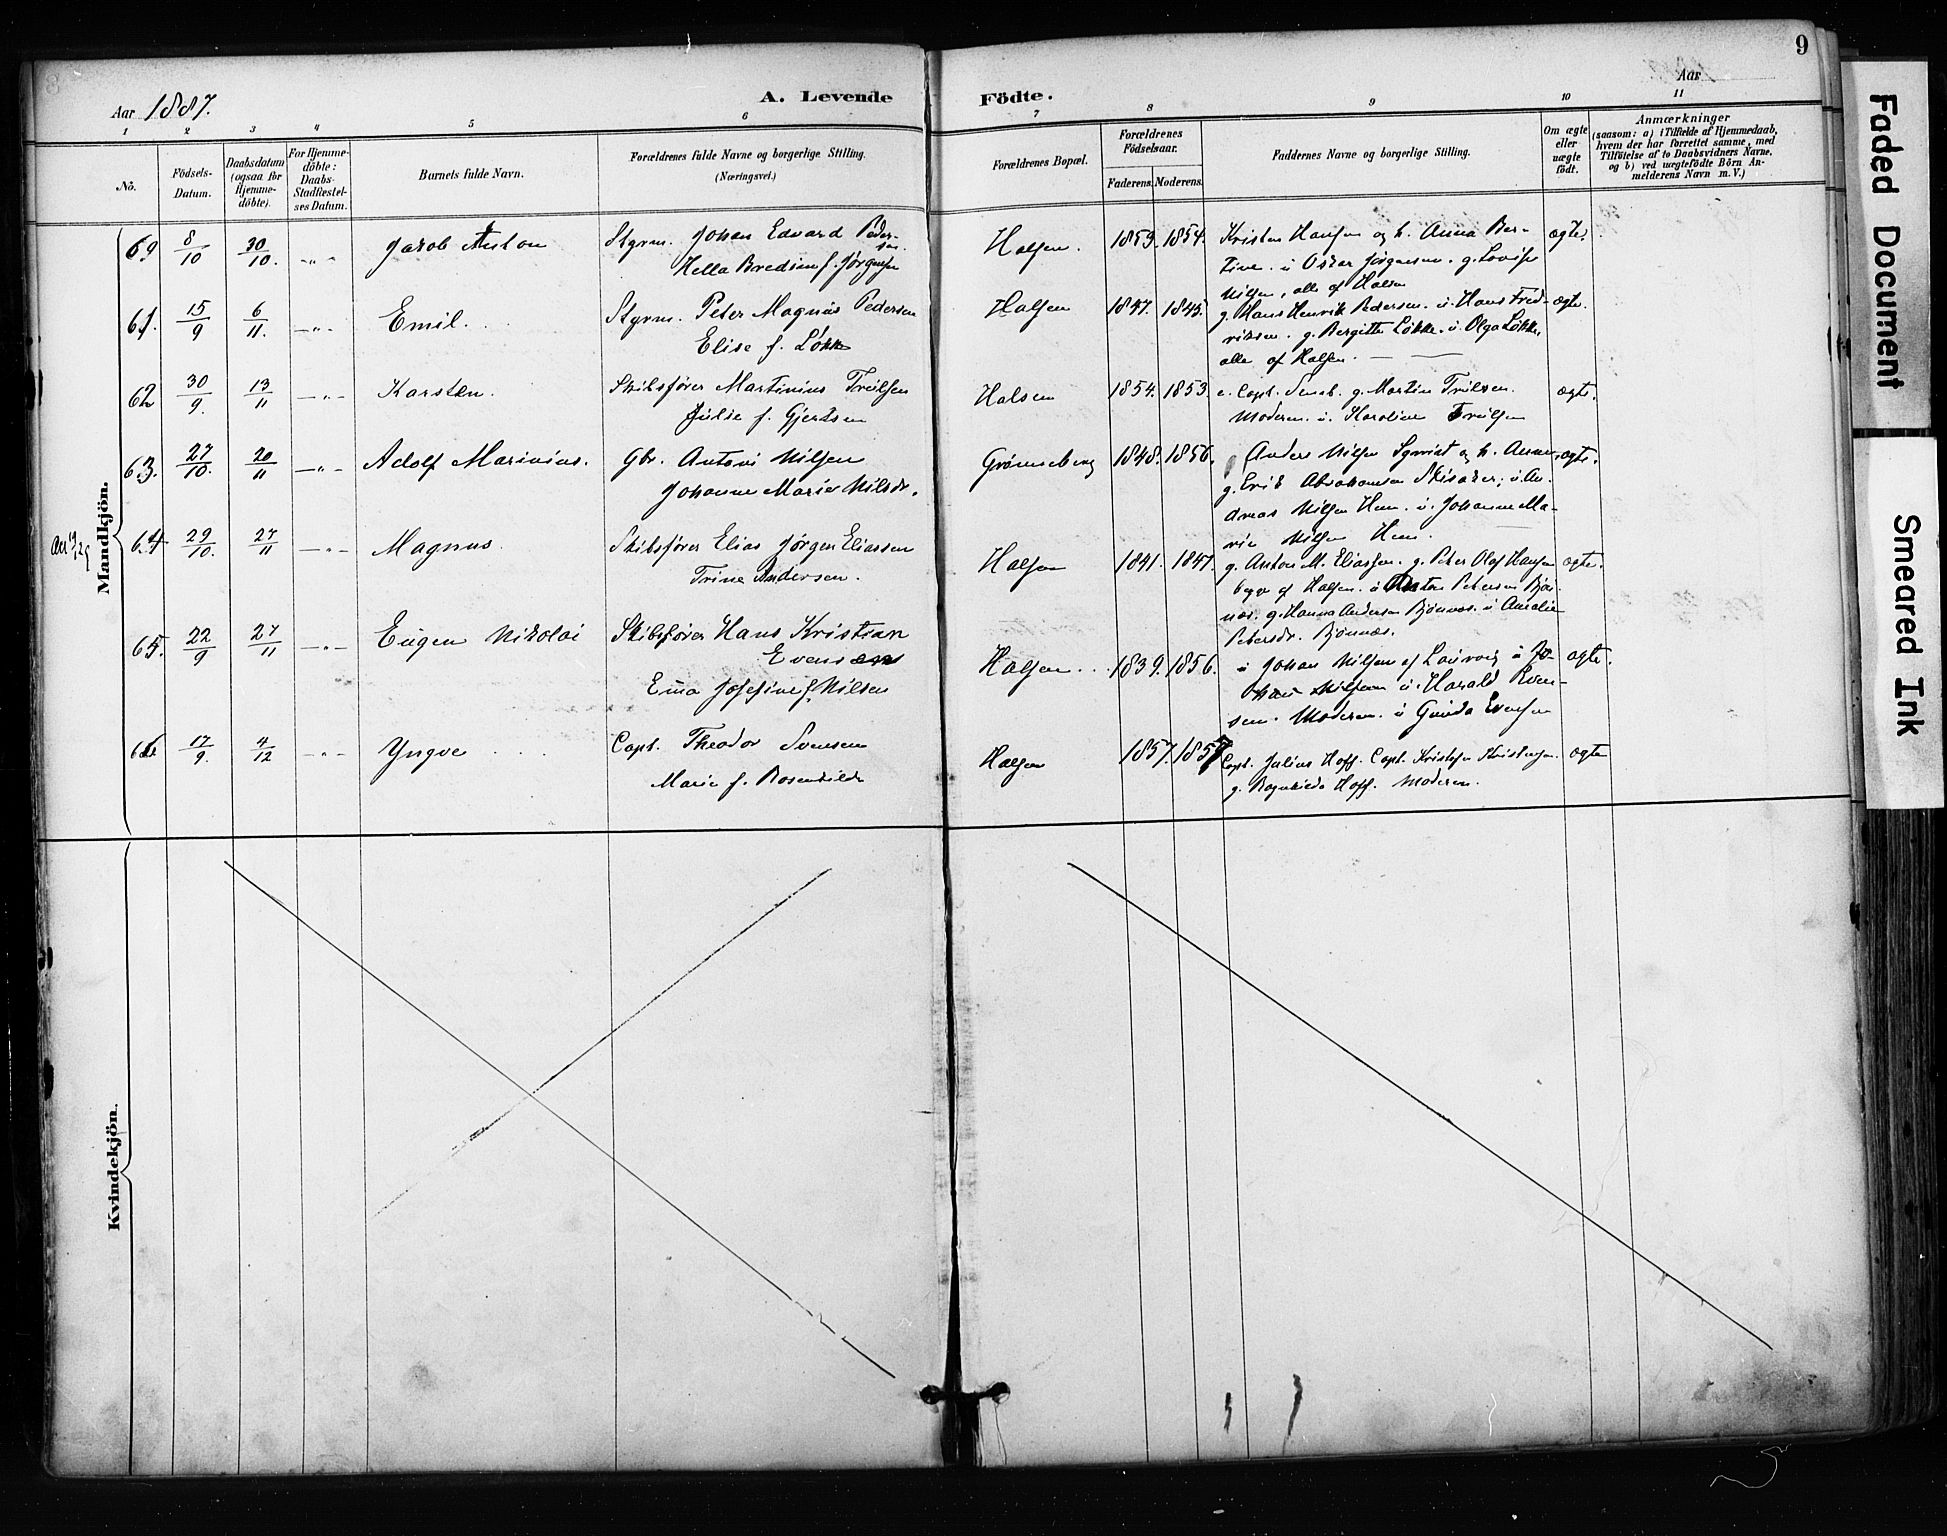 8
9
Aar 1887.
A. Levende Födte.
Aar
1 2 3 4 5 6 7 8 9 10 11
Nò.
Födsels-
Datum.
Daabsdatum
(ogsaa för
Hjemme-
döbte).
For Hjemme-
döbte:
Daabs-
Stadfæstel-
ses Datum.
Barnets fulde Navn.
Forældrenes fulde Navne og borgerlige Stilling.
(Næringsvei.)
Forældrenes Bopæl.
Forældrenes
Födselsaar.
Faderens. Moderens.
Faddernes Navne og borgerlige Stilling.
Om ægte
eller
uægte
födt.
Anmærkninger
(saasom: a) i Tilfælde af Hjemmedaab,
hvem der har forrettet samme, med
Tilföielse af to Daabsvidners Navne,
og b) ved uægtefödte Börn An-
melderens Navn m. V.)
Mandkjön.
8/10 30/10. -"- Jacob Anton
Styrm. Johan Edvard Peder-
sen.
Hella f. Jørgensen
Halsen. 1853. 1854.
Kristen Hansen og h. Anna Ber-
tine. u Oskar Jørgensen. g. Lovise
Nilsen, alle af Halsen
ægte.
61. 15/9 6/11. -"- Emil.
Styrm. Peter Magnus Pedersen
Elise f. Løkke
Halsen 1847. 1845.
g. Hans Henrik Pedersen. u. Hans Fred-
riksen. g. Bergitte Løkke. u. Olga Løkke,
alle af Halsen.
ægte.
62 30/9. 13/11 -"- Karsten.
Skibsfører Martinius
f. Gjertsen
Halsen 1854. 1853.
Capt. g. Martin
Moderen. u. Karoline
ægte.
63. 27/10. 20/11 -"- Adolf Marinius.
Gbr. Antoni Nilsen
Johanne Marie Nilsdr.
1848. 1856.
Anders Nilsen og h. Anne.
g. Erik Abrahamsen u. An-
dreas Nilsen Hem. u. Johanne Ma-
rie Nilsen Hem.
ægte.
64 29/10. 27/11 -"- Magnus.
Skibsfører Elias Jørgen Eliassen
Trine Andersen.
Halsen 1841. 1847.
g. Anton M. Eliassen. g. Peter Olaf Hansen
begge af Halsen. u Anton Petersen Bjøn-
nes. g. Hanna Andersen Bjønnes. u Amalie
Petersdr. Bjønnes.
ægte.
65. 22/9 27/11 -"- Eugen Nikolai
Skibsfører Hans Kristian
Evensen
Ema Josefine f. Nilsen
Halsen. 1839. 1856.
u Johan Nilsen af Laurvig u Jo-
han Nilsen u. Harald Even-
sen. Moderen. u Gunda Evensen
ægte.
66 17/9. 4/12 -"- Yngve
Capt. Theodor Svensen
Marie f. Rosenkilde
Halsen 1857. 1857
Capt. Julius Hoff. Capt. Kristofer Kristensen.
g. Ragnhilde Hoff. Moderen.
ægte
Kvindekjön.
Faded Document
Smeared Ink